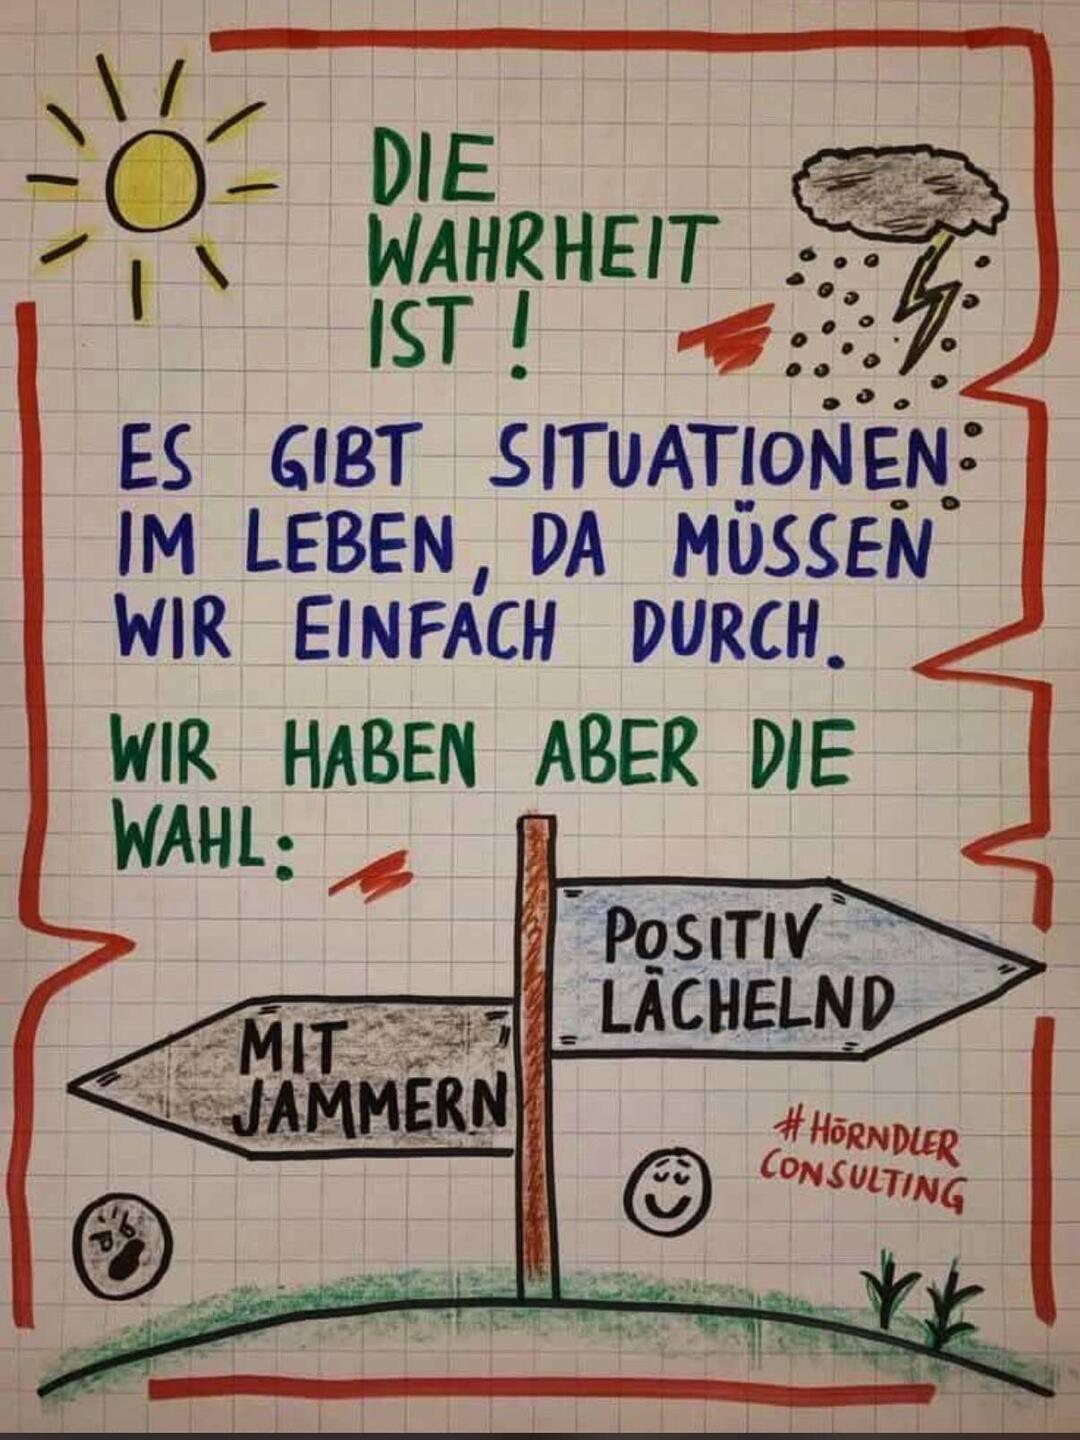 DIE
WAHRHEIT
IST!
ES GIBT SITUATIONEN
IM LEBEN, DA MÜSSEN
WIR EINFACH DURCH.
WIR HABEN ABER DIE
WAHL:
POSITIV
LÄCHELND
MIT
JAMMERN
#HÖRNDLER
CONSULTING